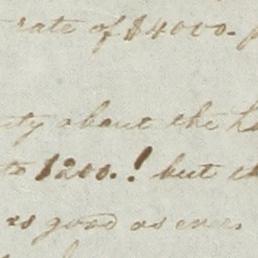 rate of $4000.
ty about the
to 1200.! but
as good as ever.